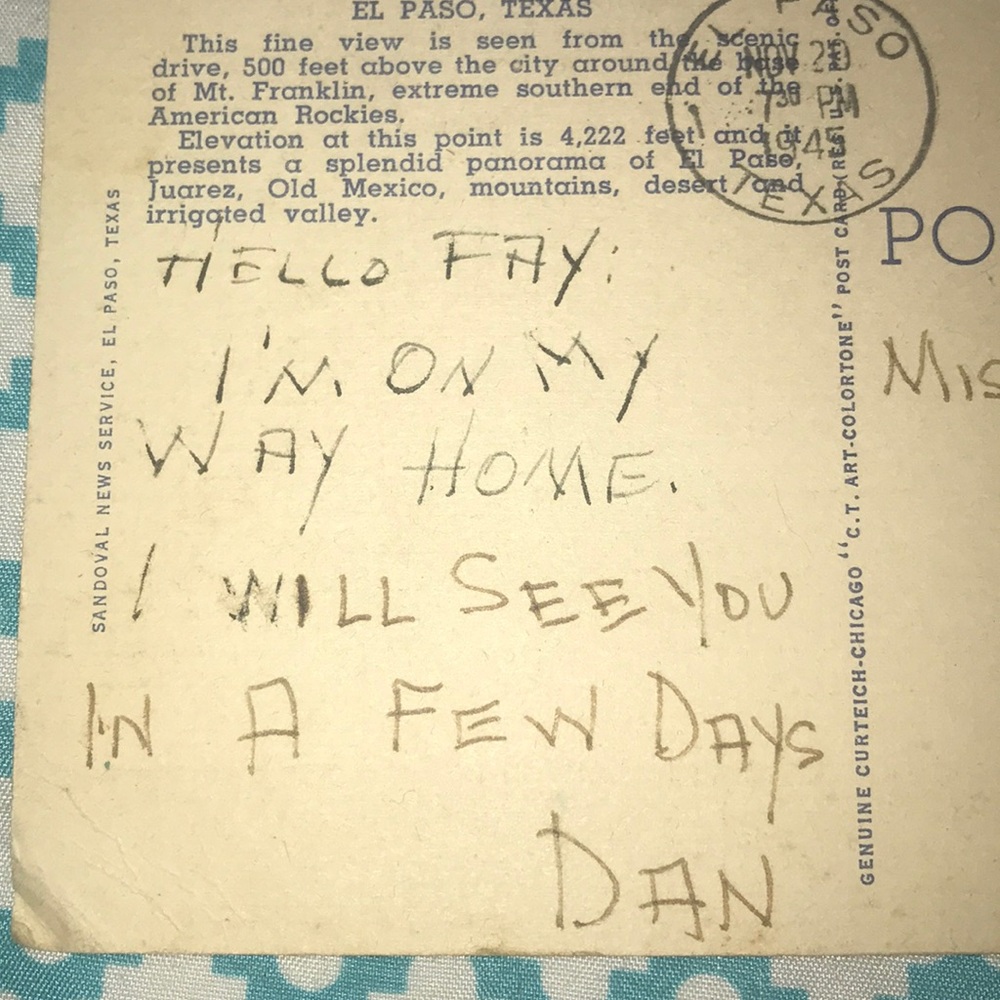 EL PASO, TEXAS
This fine view is seen from the scenic
drive, 500 feet above the city around the base
of Mt. Franklin, extreme southern end of the
American Rockies.
Elevation at this point is 4,222 feet and it
presents a splendid panorama of El Paso,
Juarez, Old Mexico, mountains, desert and
irrigated valley.
PASO
NOV 20
7 30 PM
1945
TEXAS
SANDOVAL NEWS SERVICE, EL PASO, TEXAS
HELLO FAY:
I'M ON MY
WAY HOME.
I WILL SEE YOU
IN A FEW DAYS
DAN
GENUINE CURTEICH-CHICAGO "C.T. ART-COLORTONE" POST CARD (REG. U.S. PAT. OF
PO
MIS